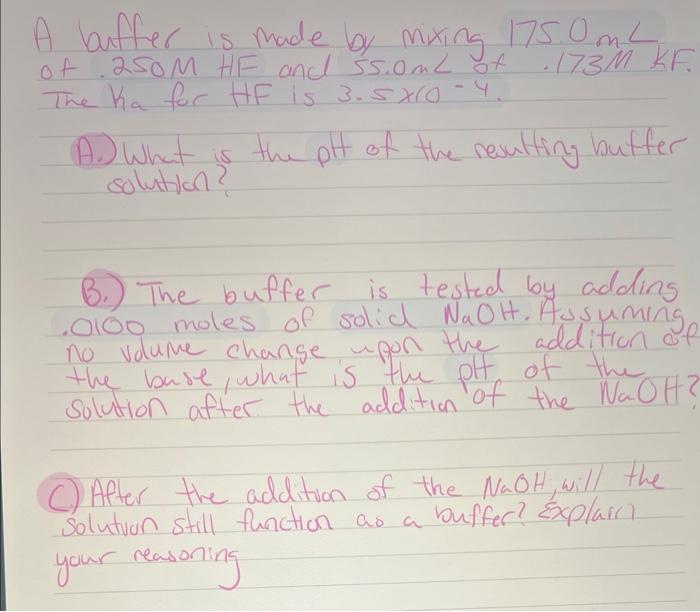 A buffer is made by mixing 175.0mL
of .250M HF and 55.0mL of .173M KF.
The Ka for HF is 3.5x10-4.
A.) What is the pH of the resulting buffer
solution?
B.) The buffer is tested by adding
.0100 moles of solid NaOH. Assuming
no volume change upon the addition of
the base, what is the pH of the
solution after the addition of the NaOH?
C) After the addition of the NaOH, will the
solution still function as a buffer? Explain
your reasoning